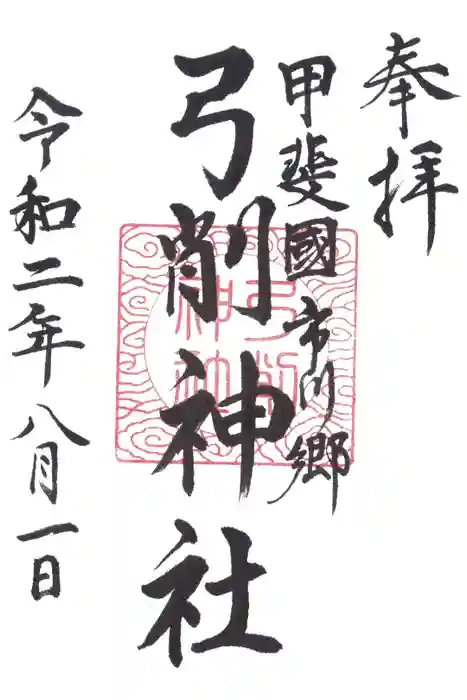 奉拝
甲斐國市川郷
弓削神社
弓削
神社
令和二年八月一日